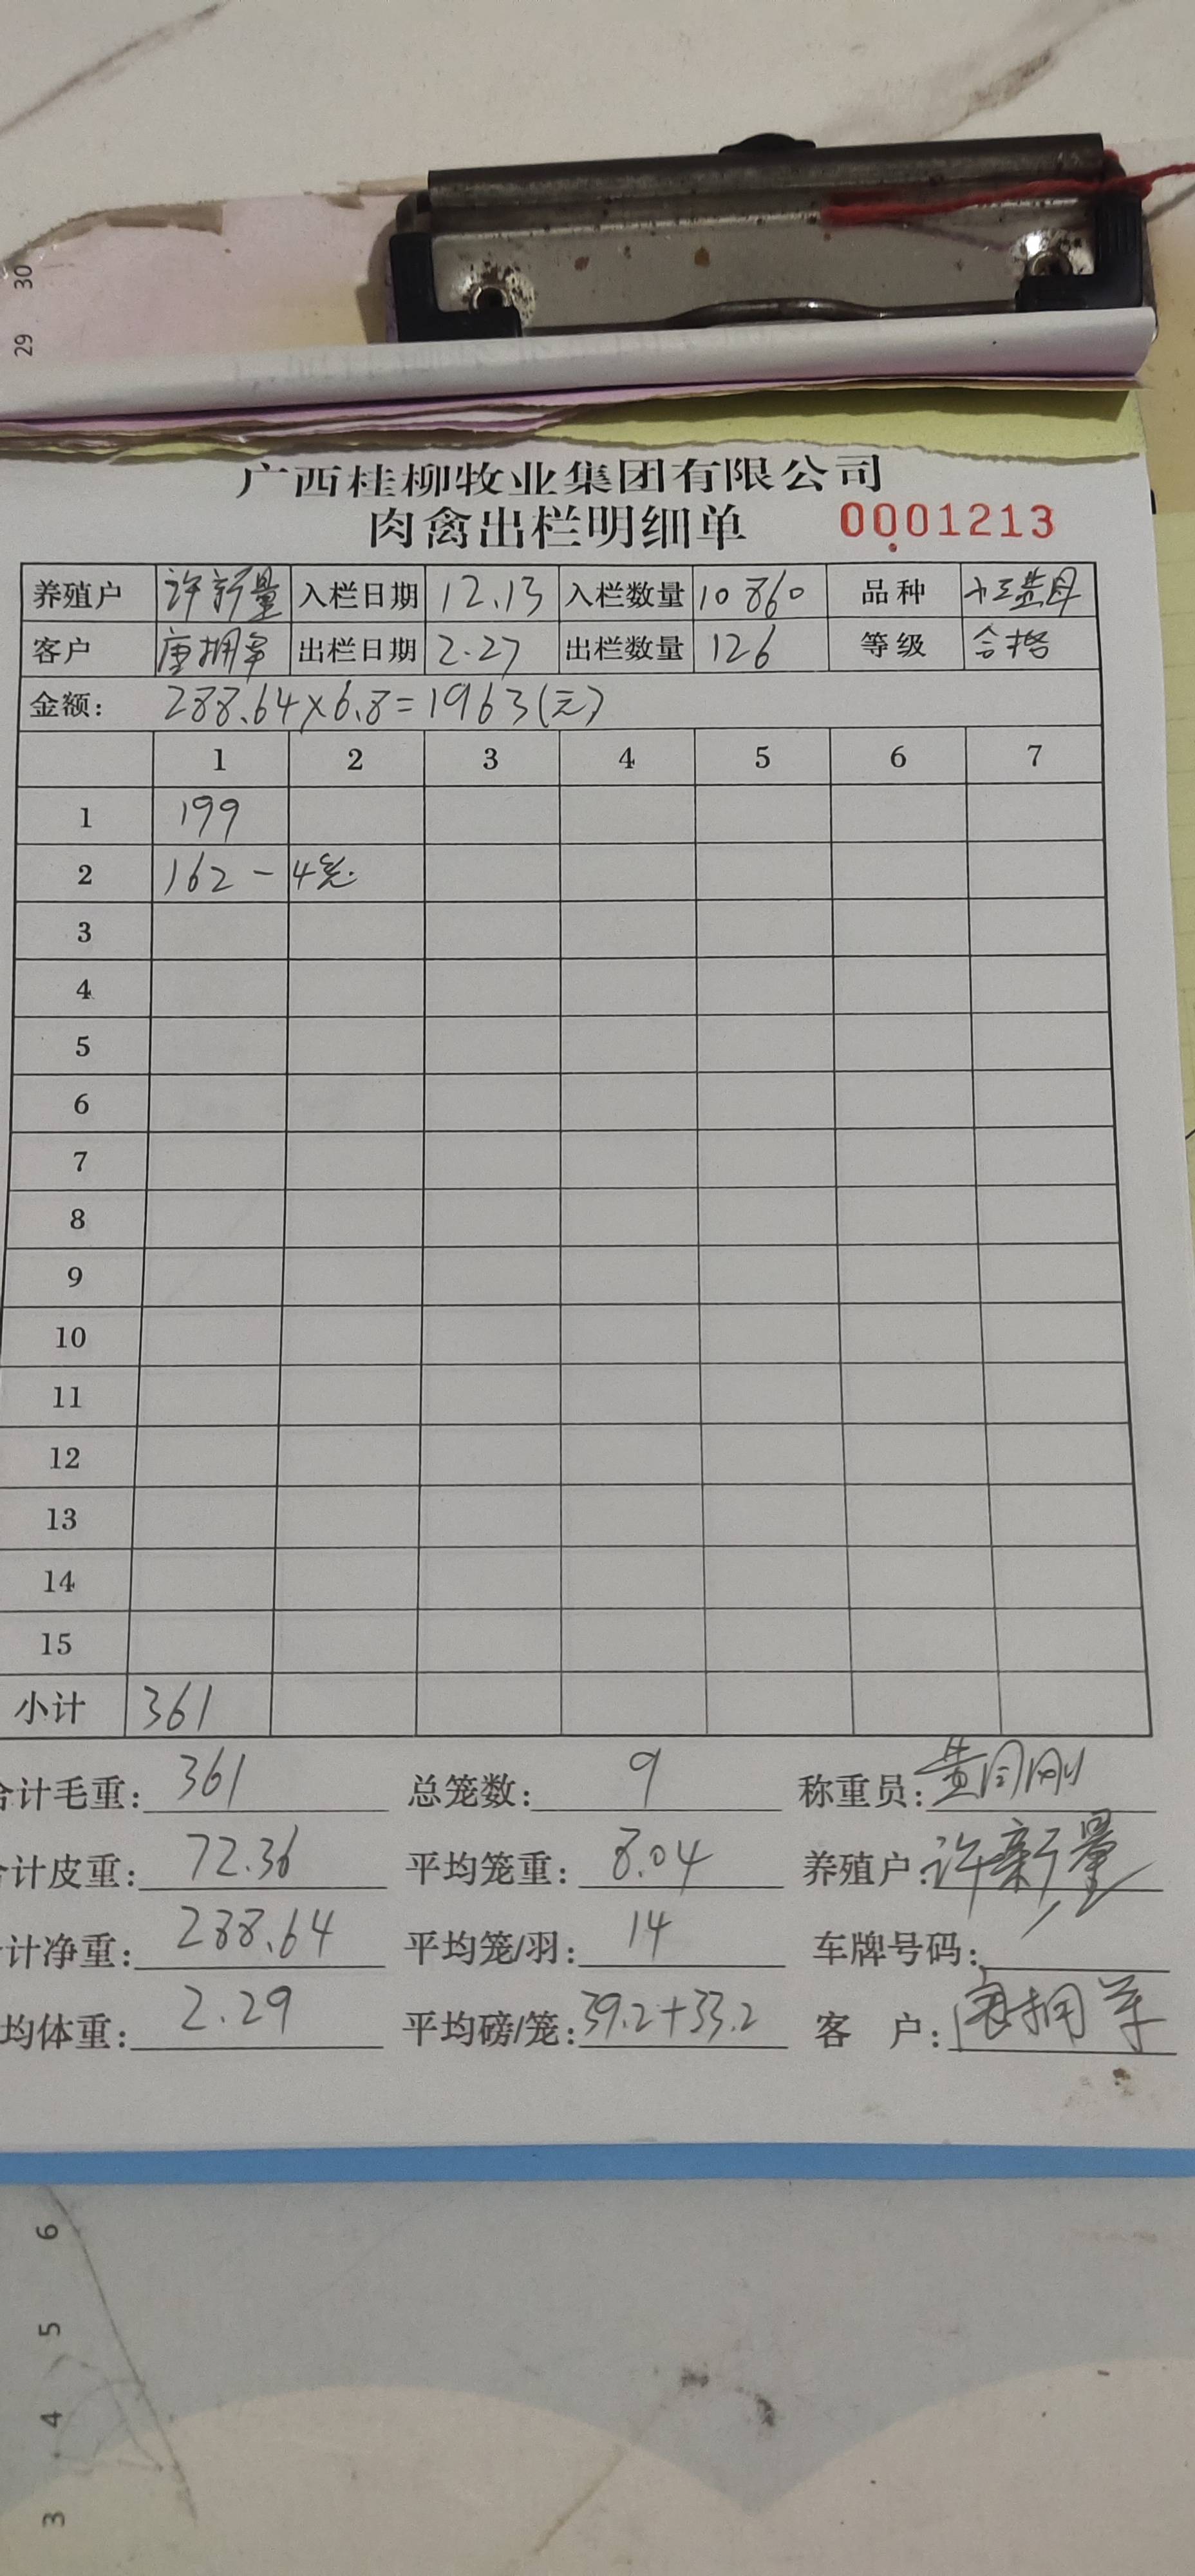 30
29
广西桂柳牧业集团有限公司
肉禽出栏明细单 0001213
养殖户 许新量 入栏日期 12.13 入栏数量 10860 品种
客户 唐拥军 出栏日期 2.27 出栏数量 126 等级 合格
金额： 288.64×6.8=1963(元)
1 2 3 4 5 6 7
1 199
2 162 - 4笼
3
4
5
6
7
8
9
10
11
12
13
14
15
小计 361
合计毛重： 361 总笼数： 9 称重员： 黄同刚
计皮重： 72.36 平均笼重： 8.04 养殖户： 许新量
计净重： 288.64 平均笼/羽： 14 车牌号码： /
均体重： 2.29 平均磅/笼： 39.2+33.2 客 户： 唐拥军
6
5
4
3